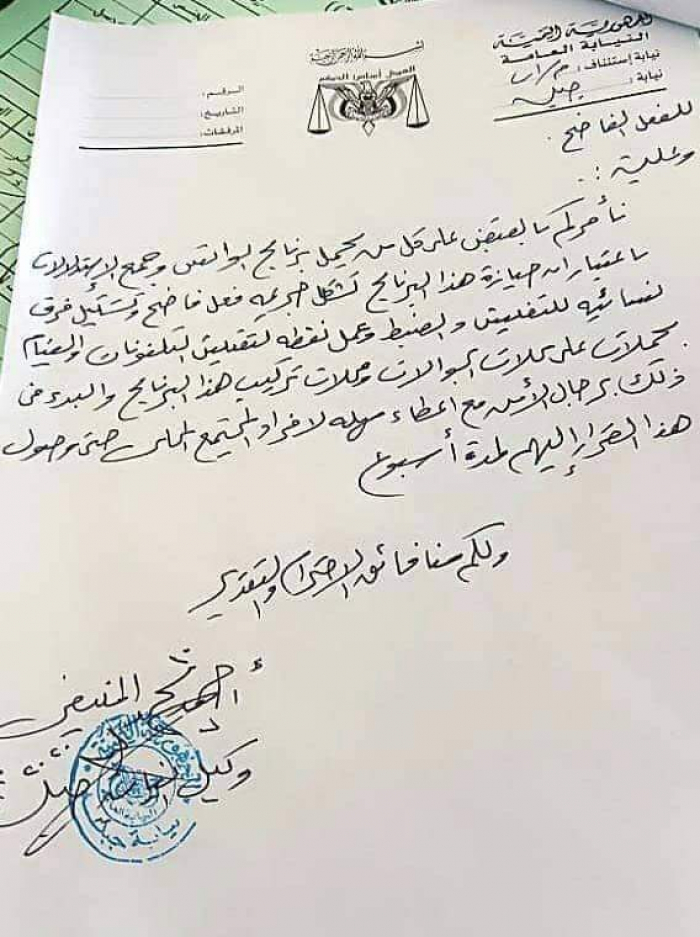 الجمهورية اليمنية
النيابة العامة
نيابة إستئناف:
نيابة: جبله
بسم الله الرحمن الرحيم
العدل أساس الحكم
الرقم:
التاريخ:
المرفقات:
للفعل الفاضح.
وعلية :.
نأمركم بالقبض على كل من يحمل برنامج الواتس وجمع الإستدلالات
باعتبار ان حيازة هذا البرنامج تشكل جريمة فعل فاضح وتشكيل فرق
نسائيه للتفتيش والضبط وعمل نقطه لتفتيش التلفونات والقيام
بحملات على محلات الجوالات ومحلات تركيب هذا البرنامج والبدء في
ذلك برجال الأمن مع اعطاء مهله لافراد المجتمع المحلي حتى وصول
هذا القرار إليهم لمدة أسبوع
ولكم منا فائق الاحترام والتقدير
وكيل نيابة جبله
نيابة جبلة